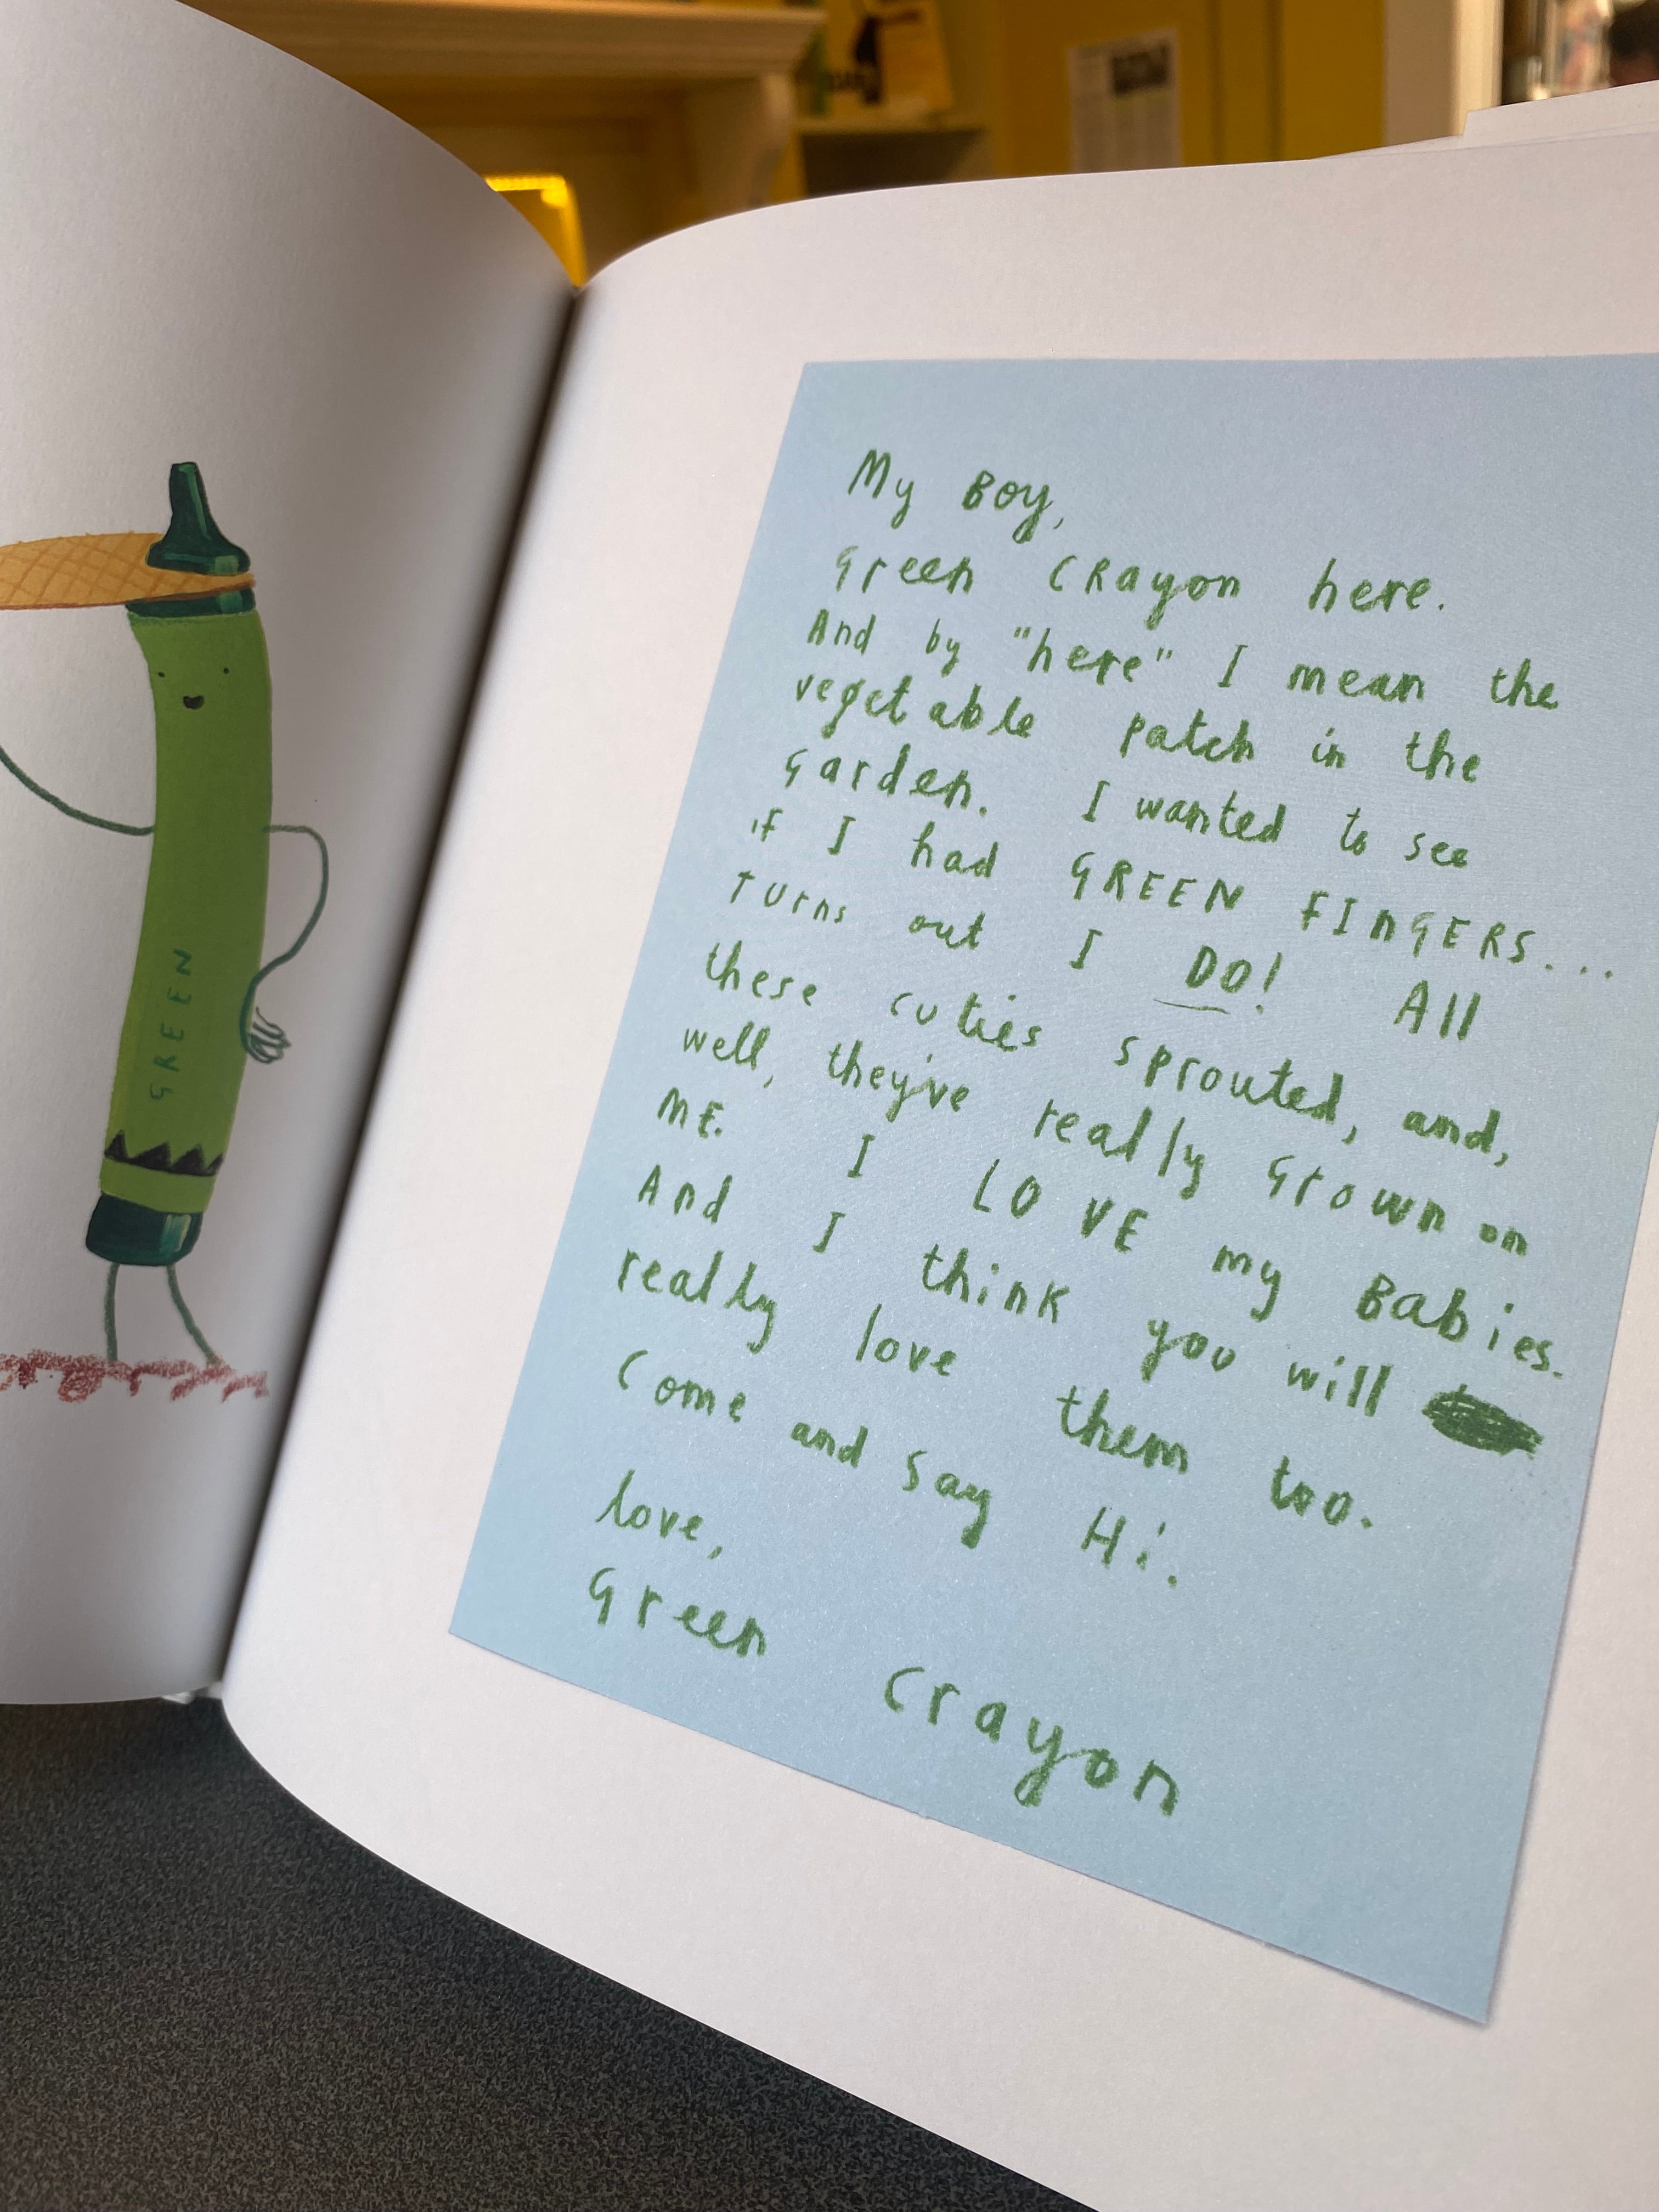 GREEN
My Boy,
Green CRayon here.
And by "here" I mean the
vegetable patch in the
Garden. I wanted to see
if I had GREEN FINGERS...
Turns out I DO! All
these cuties sprouted, and,
well, they've really grown on
ME. I LOVE my Babies.
And I think you will
really love them too.
Come and say Hi.
love,
Green Crayon